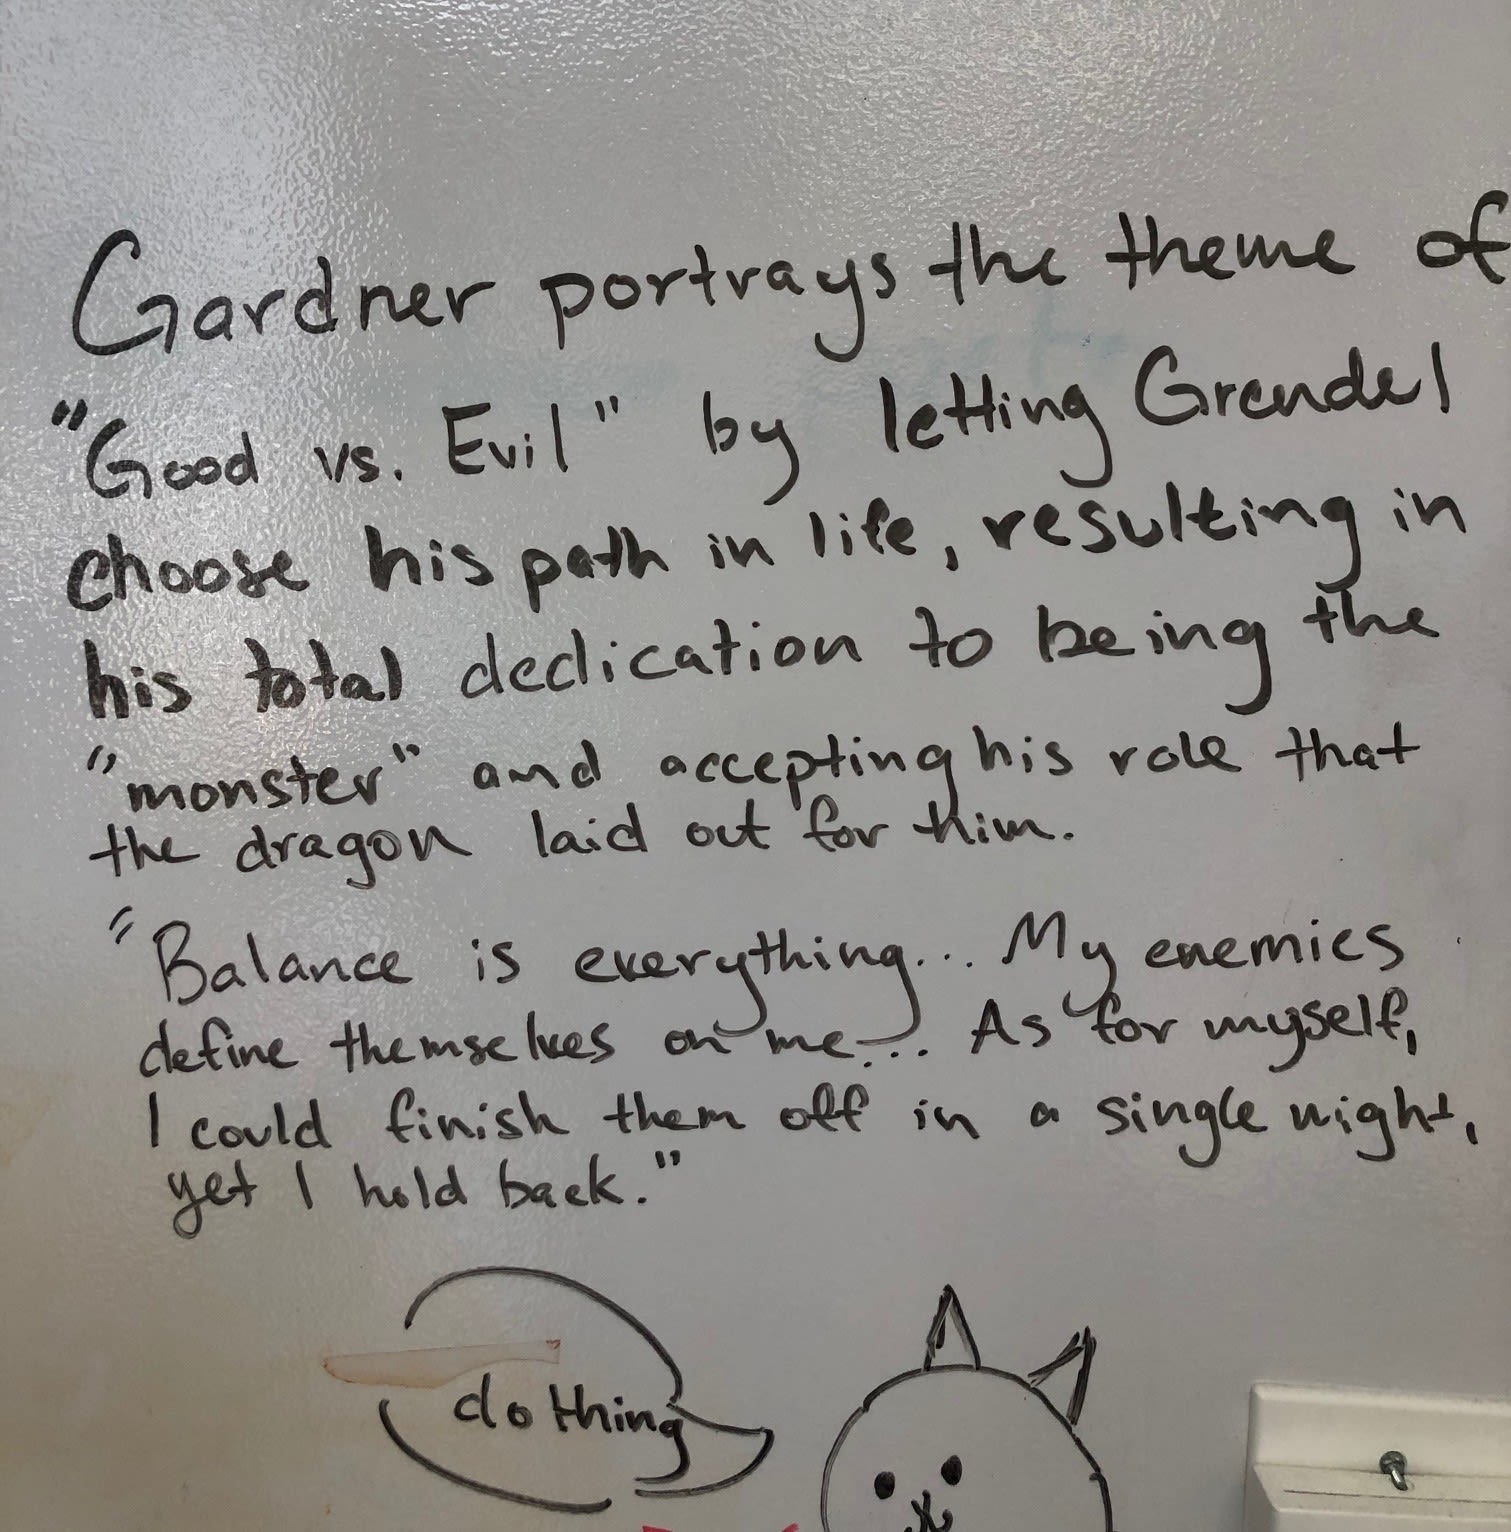 Gardner portrays the theme of
"Good vs. Evil" by letting Grendel
choose his path in life, resulting in
his total dedication to being the
"monster" and accepting his role that
the dragon laid out for him.
"Balance is everything... My enemies
define themselves on me... As for myself,
I could finish them off in a single night,
yet I hold back."
do thing